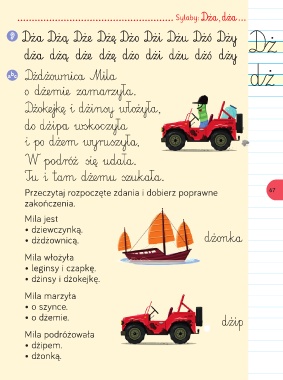 Sylaby: Dża, dża...
Dża Dżą Dże Dżę Dżo Dżi Dżu Dżó Dży
dża dżą dże dżę dżo dżi dżu dżó dży
Dż
dż
Dżdżownica Mila
o dżemie zamarzyła.
Dżokejkę i dżinsy włożyła,
do dżipa wskoczyła
i po dżem wyruszyła.
W podróż się udała.
Tu i tam dżemu szukała.
Przeczytaj rozpoczęte zdania i dobierz poprawne
zakończenia.
Mila jest
• dziewczynką.
• dżdżownicą.
Mila włożyła
• leginsy i czapkę.
• dżinsy i dżokejkę.
Mila marzyła
• o szynce.
• o dżemie.
Mila podróżowała
• dżipem.
• dżonką.
dżonka
dżip
67